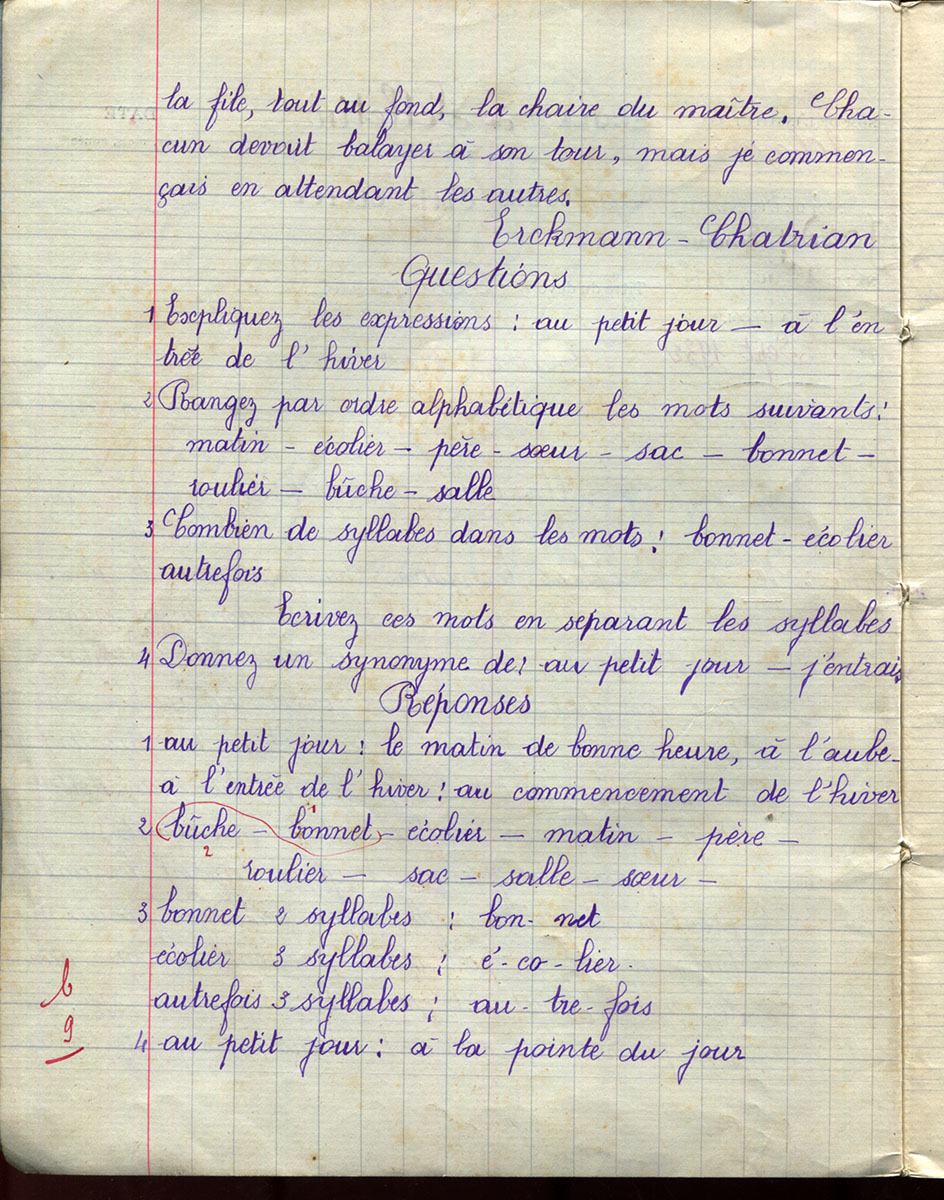 la file, tout au fond, la chaire du maître. Cha-
cun devait balayer à son tour, mais je commen-
çais en attendant les autres.
Erckmann - Chatrian
Questions
1 Expliquez les expressions : au petit jour — à l'en
trée de l'hiver
2 Rangez par ordre alphabétique les mots suivants :
matin - écolier - père - sœur - sac - bonnet -
roulier - bûche - salle
3 Combien de syllabes dans les mots : bonnet - écolier
autrefois
Ecrivez ces mots en séparant les syllabes
4 Donnez un synonyme de : au petit jour — j'entrais
Réponses
1 au petit jour : le matin de bonne heure, à l'aube -
à l'entrée de l'hiver : au commencement de l'hiver
1
2 bûche - bonnet - écolier - matin - père -
2
roulier - sac - salle - sœur -
3 bonnet 2 syllabes : bon - net
écolier 3 syllabes : é - co - lier .
autrefois 3 syllabes : au - tre - fois
b
9
4 au petit jour : à la pointe du jour